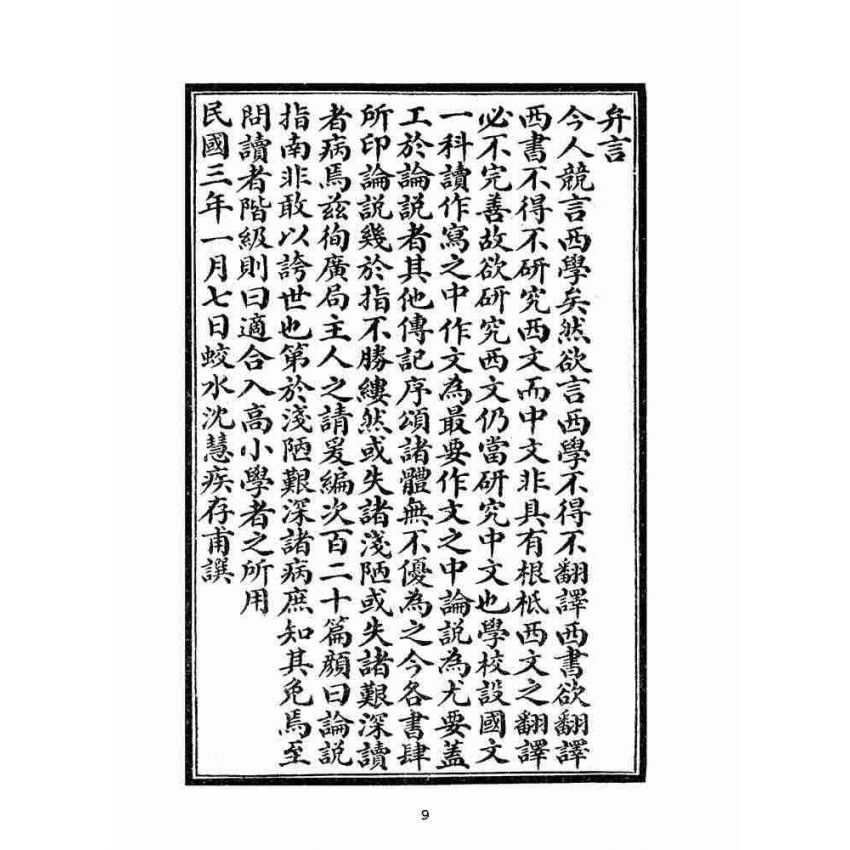 弁言
今人競言西學矣然欲言西學不得不翻譯西書欲翻譯
西書不得不研究西文而中文非具有根柢西文之翻譯
必不完善故欲研究西文仍當研究中文也學校設國文
一科讀作寫之中作文為最要作文之中論說為尤要蓋
工於論說者其他傳記序頌諸體無不優為之今各書肆
所印論說幾於指不勝縷然或失諸淺陋或失諸艱深讀
者病焉茲徇廣局主人之請爰編次百二十篇顏曰論說
指南非敢以誇世也第於淺陋艱深諸病庶知其免焉至
問讀者階級則曰適合入高小學者之所用
民國三年一月七日蛟水沈慧疾存甫譔
9